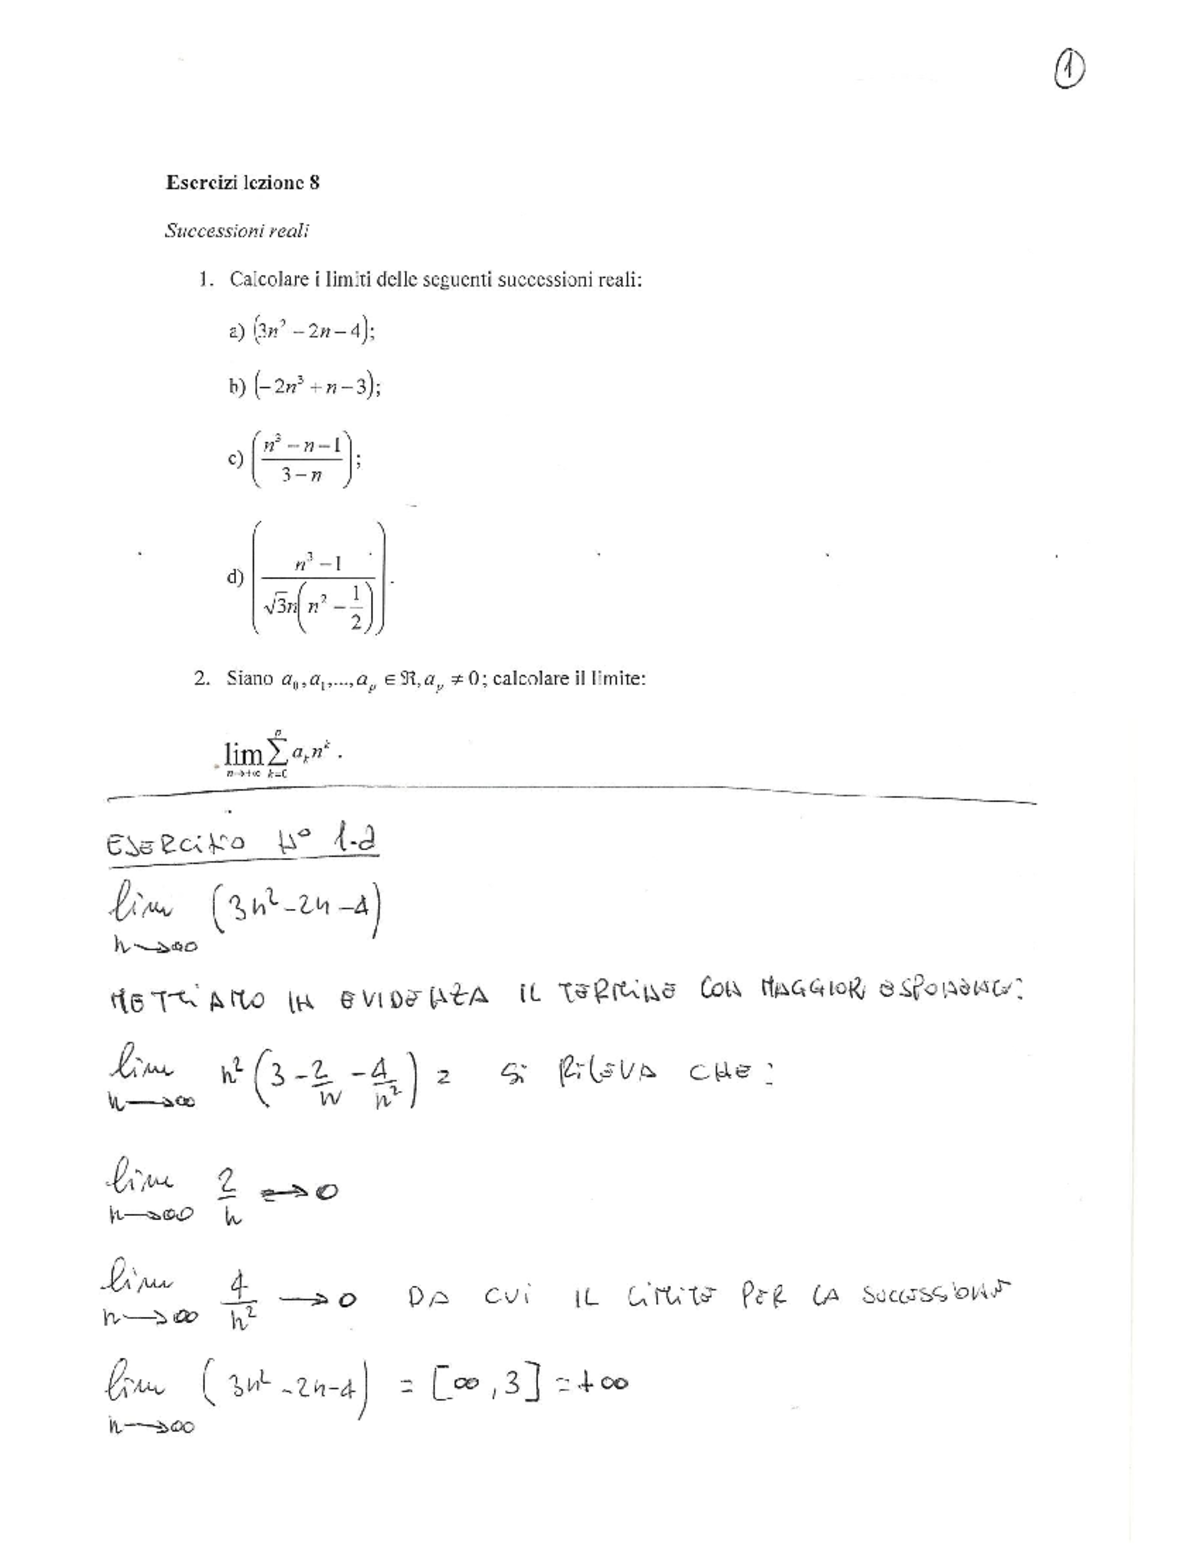 ①
Esercizi lezione 8
Successioni reali
1. Calcolare i limiti delle seguenti successioni reali:
a) (3n² − 2n − 4);
b) (−2n³ + n − 3);
c) ((n³ − n − 1)/(3 − n));
d) ((n³ − 1)/(√3n(n² − 1/2))).
2. Siano a₀, a₁, ..., aₚ ∈ ℜ, aₚ ≠ 0; calcolare il limite:
lim n→+∞ Σ k=0 p aₖnᵏ .
ESERCIZIO N° 1-a
lim n→∞ (3n² - 2n - 4)
METTIAMO IN EVIDENZA IL TERMINE CON MAGGIOR ESPONENTE:
lim n→∞ n² (3 - 2/n - 4/n²) = SI RILEVA CHE:
lim n→∞ 2/n → 0
lim n→∞ 4/n² → 0 DA CUI IL LIMITE PER LA SUCCESSIONE
lim n→∞ (3n² - 2n - 4) = [∞, 3] = +∞